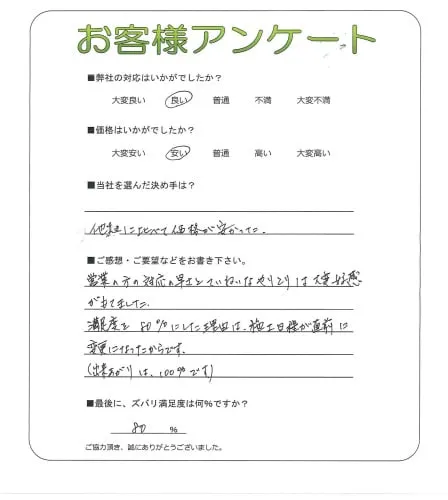 お客様アンケート
■弊社の対応はいかがでしたか?
大変良い 良い 普通 不満 大変不満
■価格はいかがでしたか?
大変安い 安い 普通 高い 大変高い
■当社を選んだ決め手は?
他社に比べて価格が安かった。
■ご感想・ご要望などをお書き下さい。
営業の方の対応の早さとていねいなやりとりは大変好感
がもてました。
満足度を80%にした理由は、施工日様が直前に
変更になったからです。
(出来あがりは、100%です)
■最後に、ズバリ満足度は何%ですか?
80 %
ご協力頂き、誠にありがとうございました。